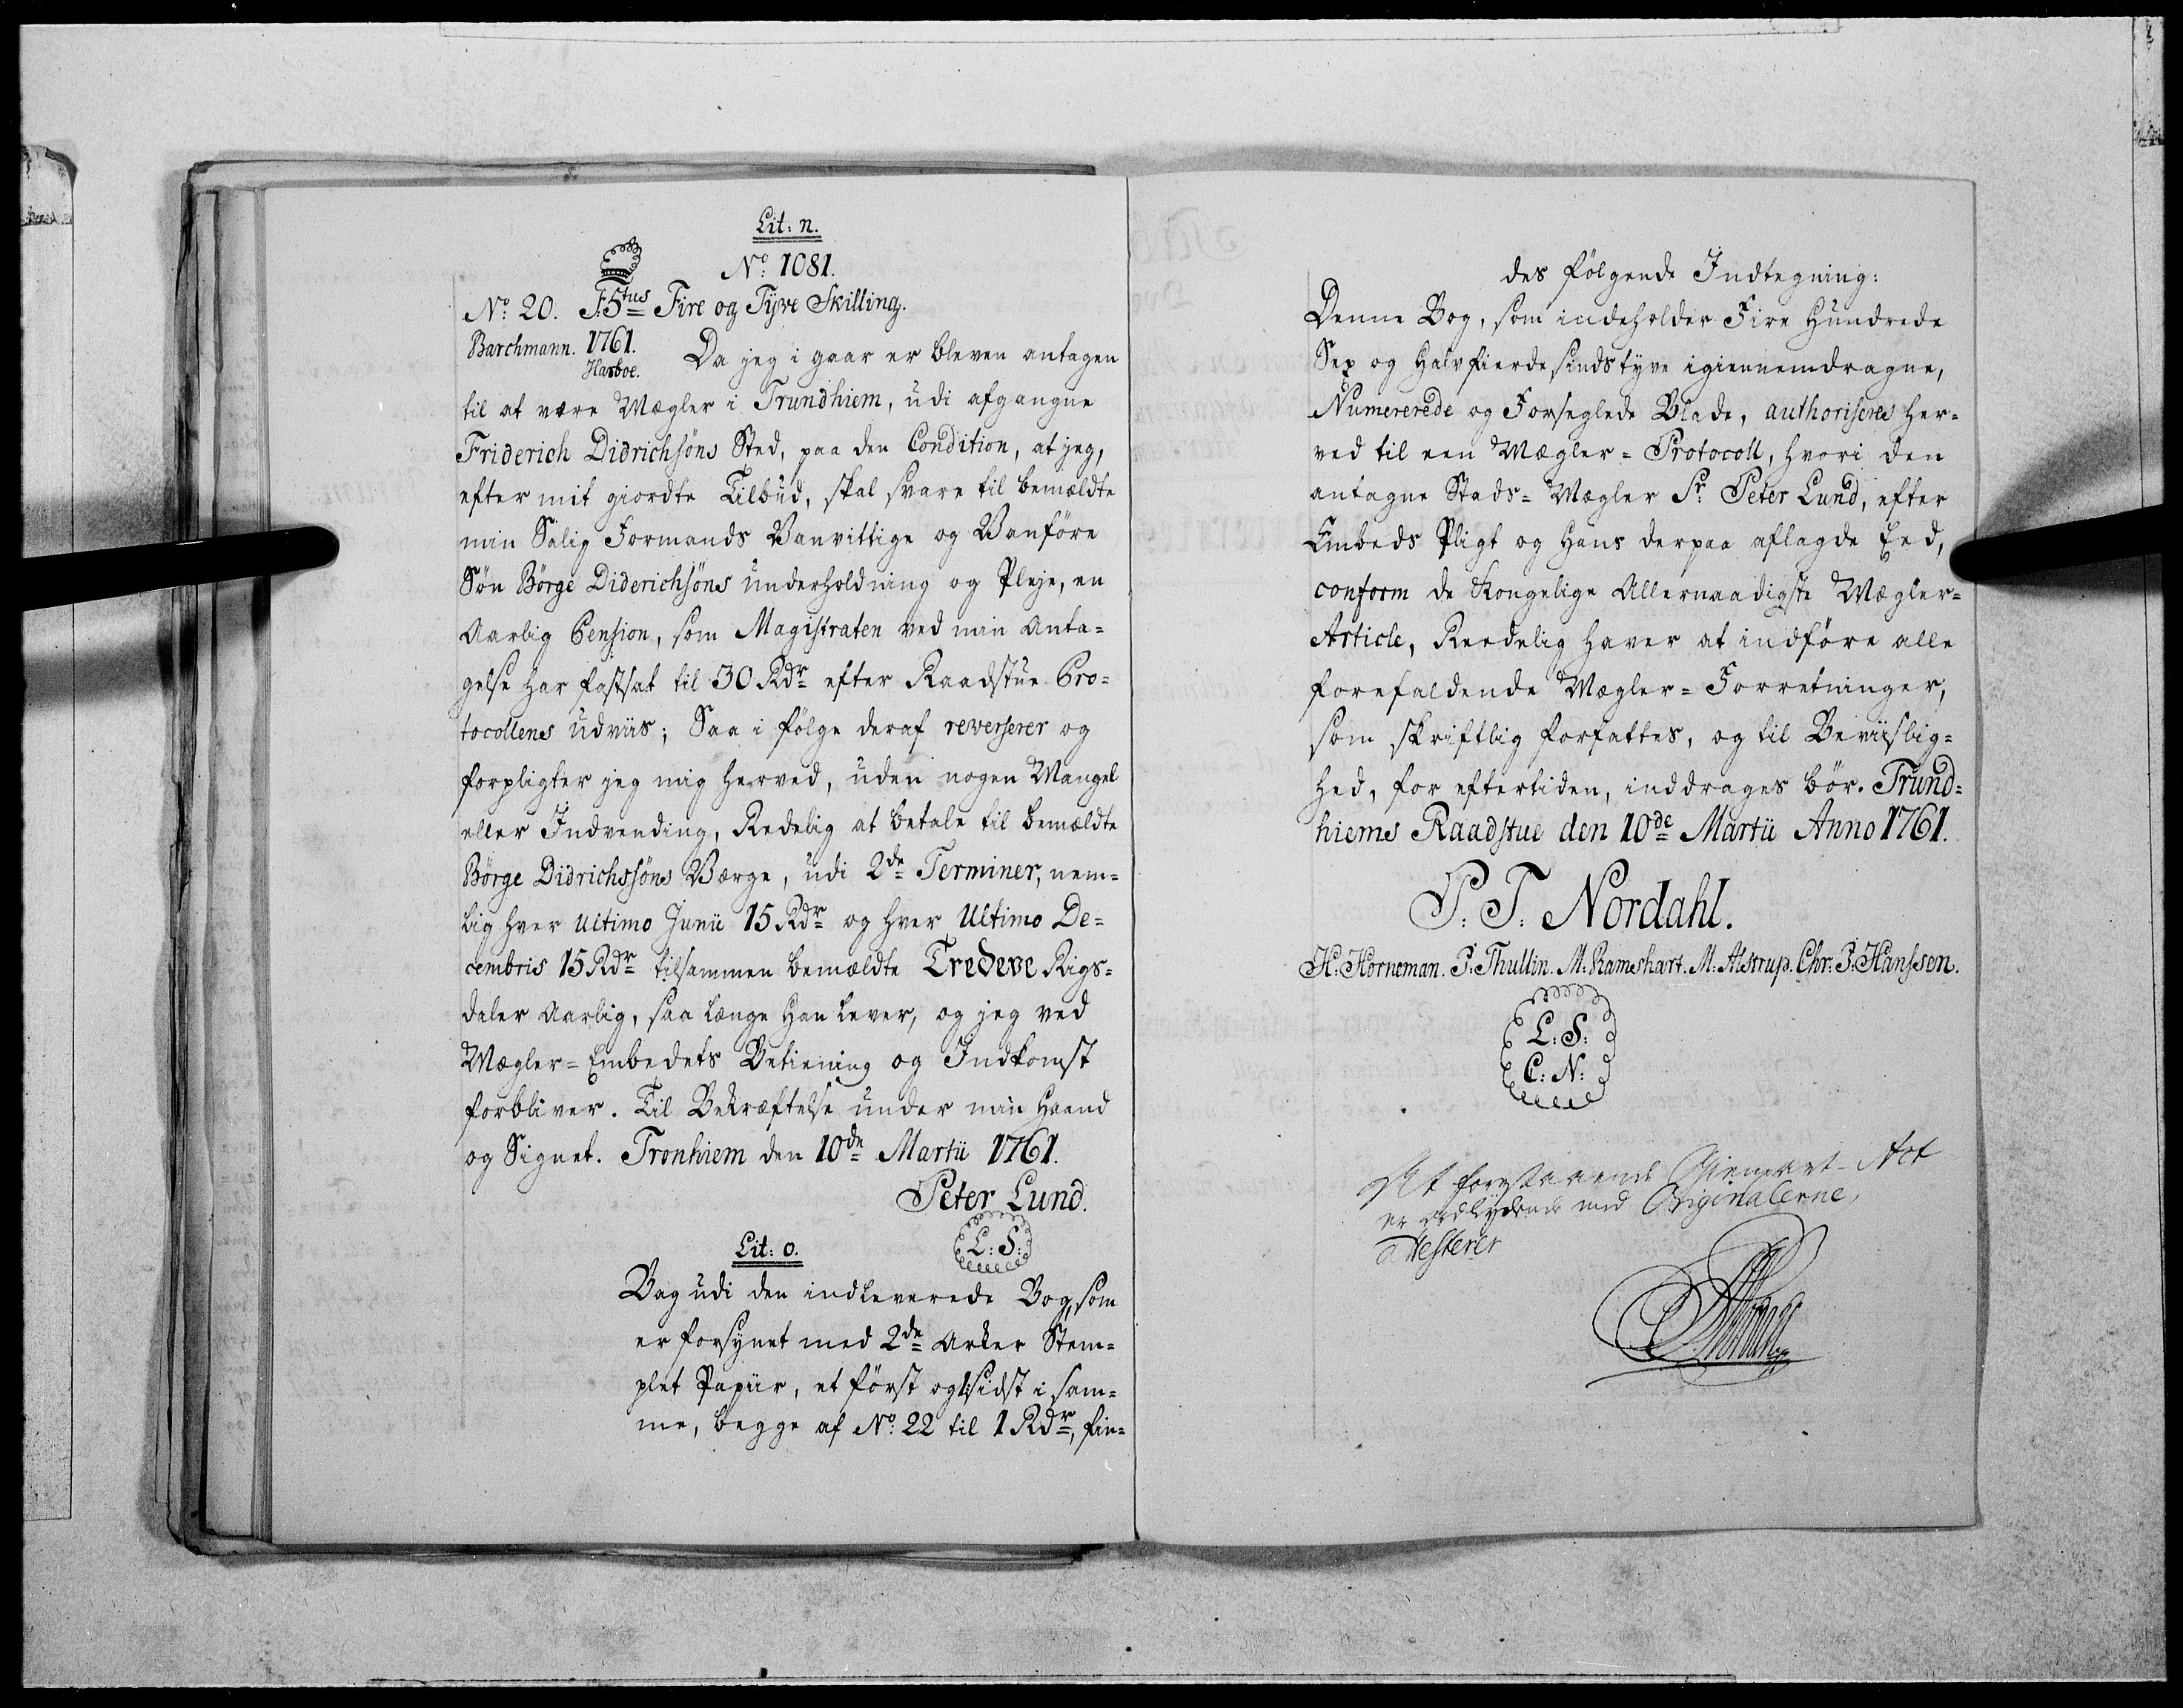 Lit: n.
No: 1081.
No: 20. F5tus Fire og Tyve Skilling.
Barchmann. 1761.
Harboe.
Da jeg i gaar er bleven antagen
til at være Mægler i Trundhiem, udi afgangne
Friderich Didrichsöns Sted, paa den Condition, at jeg,
efter mit giordte Tilbud, skal svare til bemældte
min Salig Formands Vanvittige og Vanföre
Sön Börge Diderichsöns underholdning og Pleje, en
Aarlig Pension, som Magistraten ved min Anta=
gelse har fastsat til 30 Rdr efter Raadstue Pro=
tocollens udviis; Saa i fölge deraf reverserer og
forpligter jeg mig herved, uden nogen Mangel
eller Indvending, Redelig at betale til bemældte
Börge Didrichssöns Værge, udi 2de Terminer, nem=
lig hver ultimo Junii 15 Rdr og hver Ultimo De=
cembris 15 Rdr tilsammen bemældte Tredeve Rigs=
daler Aarlig, saa længe Han Lever, og jeg ved
Mægler=Embedets Betiening og Indkomst
forbliver. Til Bekræftelse under min Haand
og Signet. Tronhiem den 10de Martii 1761.
Peter Lund.
L: S:
Lit: o.
Bag udi den indleverede Bog, som
er forsynet med 2de Arker Stem=
plet Papiir, et först og 1 sidst i sam=
me, begge af No: 22 til 1 Rdr, fin=
des fölgende Indtegning:
Denne Bog, som indeholder Fire Hundrede
Sex og Halvfierdesindstyve igiennemdragne,
Numererede og Forseglede Blade, authoriseres her=
ved til een Mægler=Protocoll, hvori den
antagne Stads=Mægler Sr Peter Lund, efter
Embeds Pligt og Hans derpaa aflagde Eed,
conform de Kongelige Allernaadigste Mægler=
Article, Reedelig haver at indföre alle
forefaldende Mægler=Forretninger,
som skriftlig forfattes, og til Beviislig=
hed, for eftertiden, inddrages bör. Trund=
hiems Raadstue den 10de Martii Anno 1761.
P. T. Nordahl.
H: Horneman. P: Thullin. M: Rameshart. M: Alstrup. Chr: P: Hanssen.
L: S:
C: N:
At forestaaende Gienpart-Act
er ordlydende med Originalerne,
attesterer